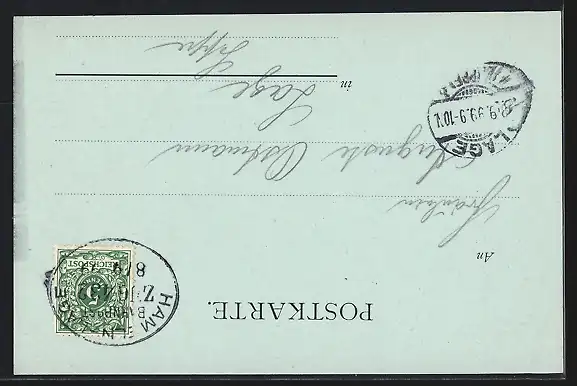 POSTKARTE.
An
Fräulein
Auguste Ostmann
in
Lage
Lippe
REICHSPOST
5
BAHNPOST
8/9
LAGE
8.9.99.9-10V.